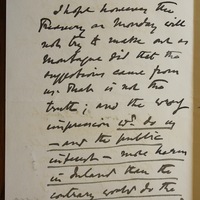 I hope however the
Treasury on Monday will
not try to make out as
Montague did that the
suggestions came from
us. That is not the
truth; and the wrong
impression wd. do us
– and the public
interest – more harm
in Ireland than the
contrary would do the